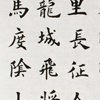 里長征人
龍城飛將
馬度陰山